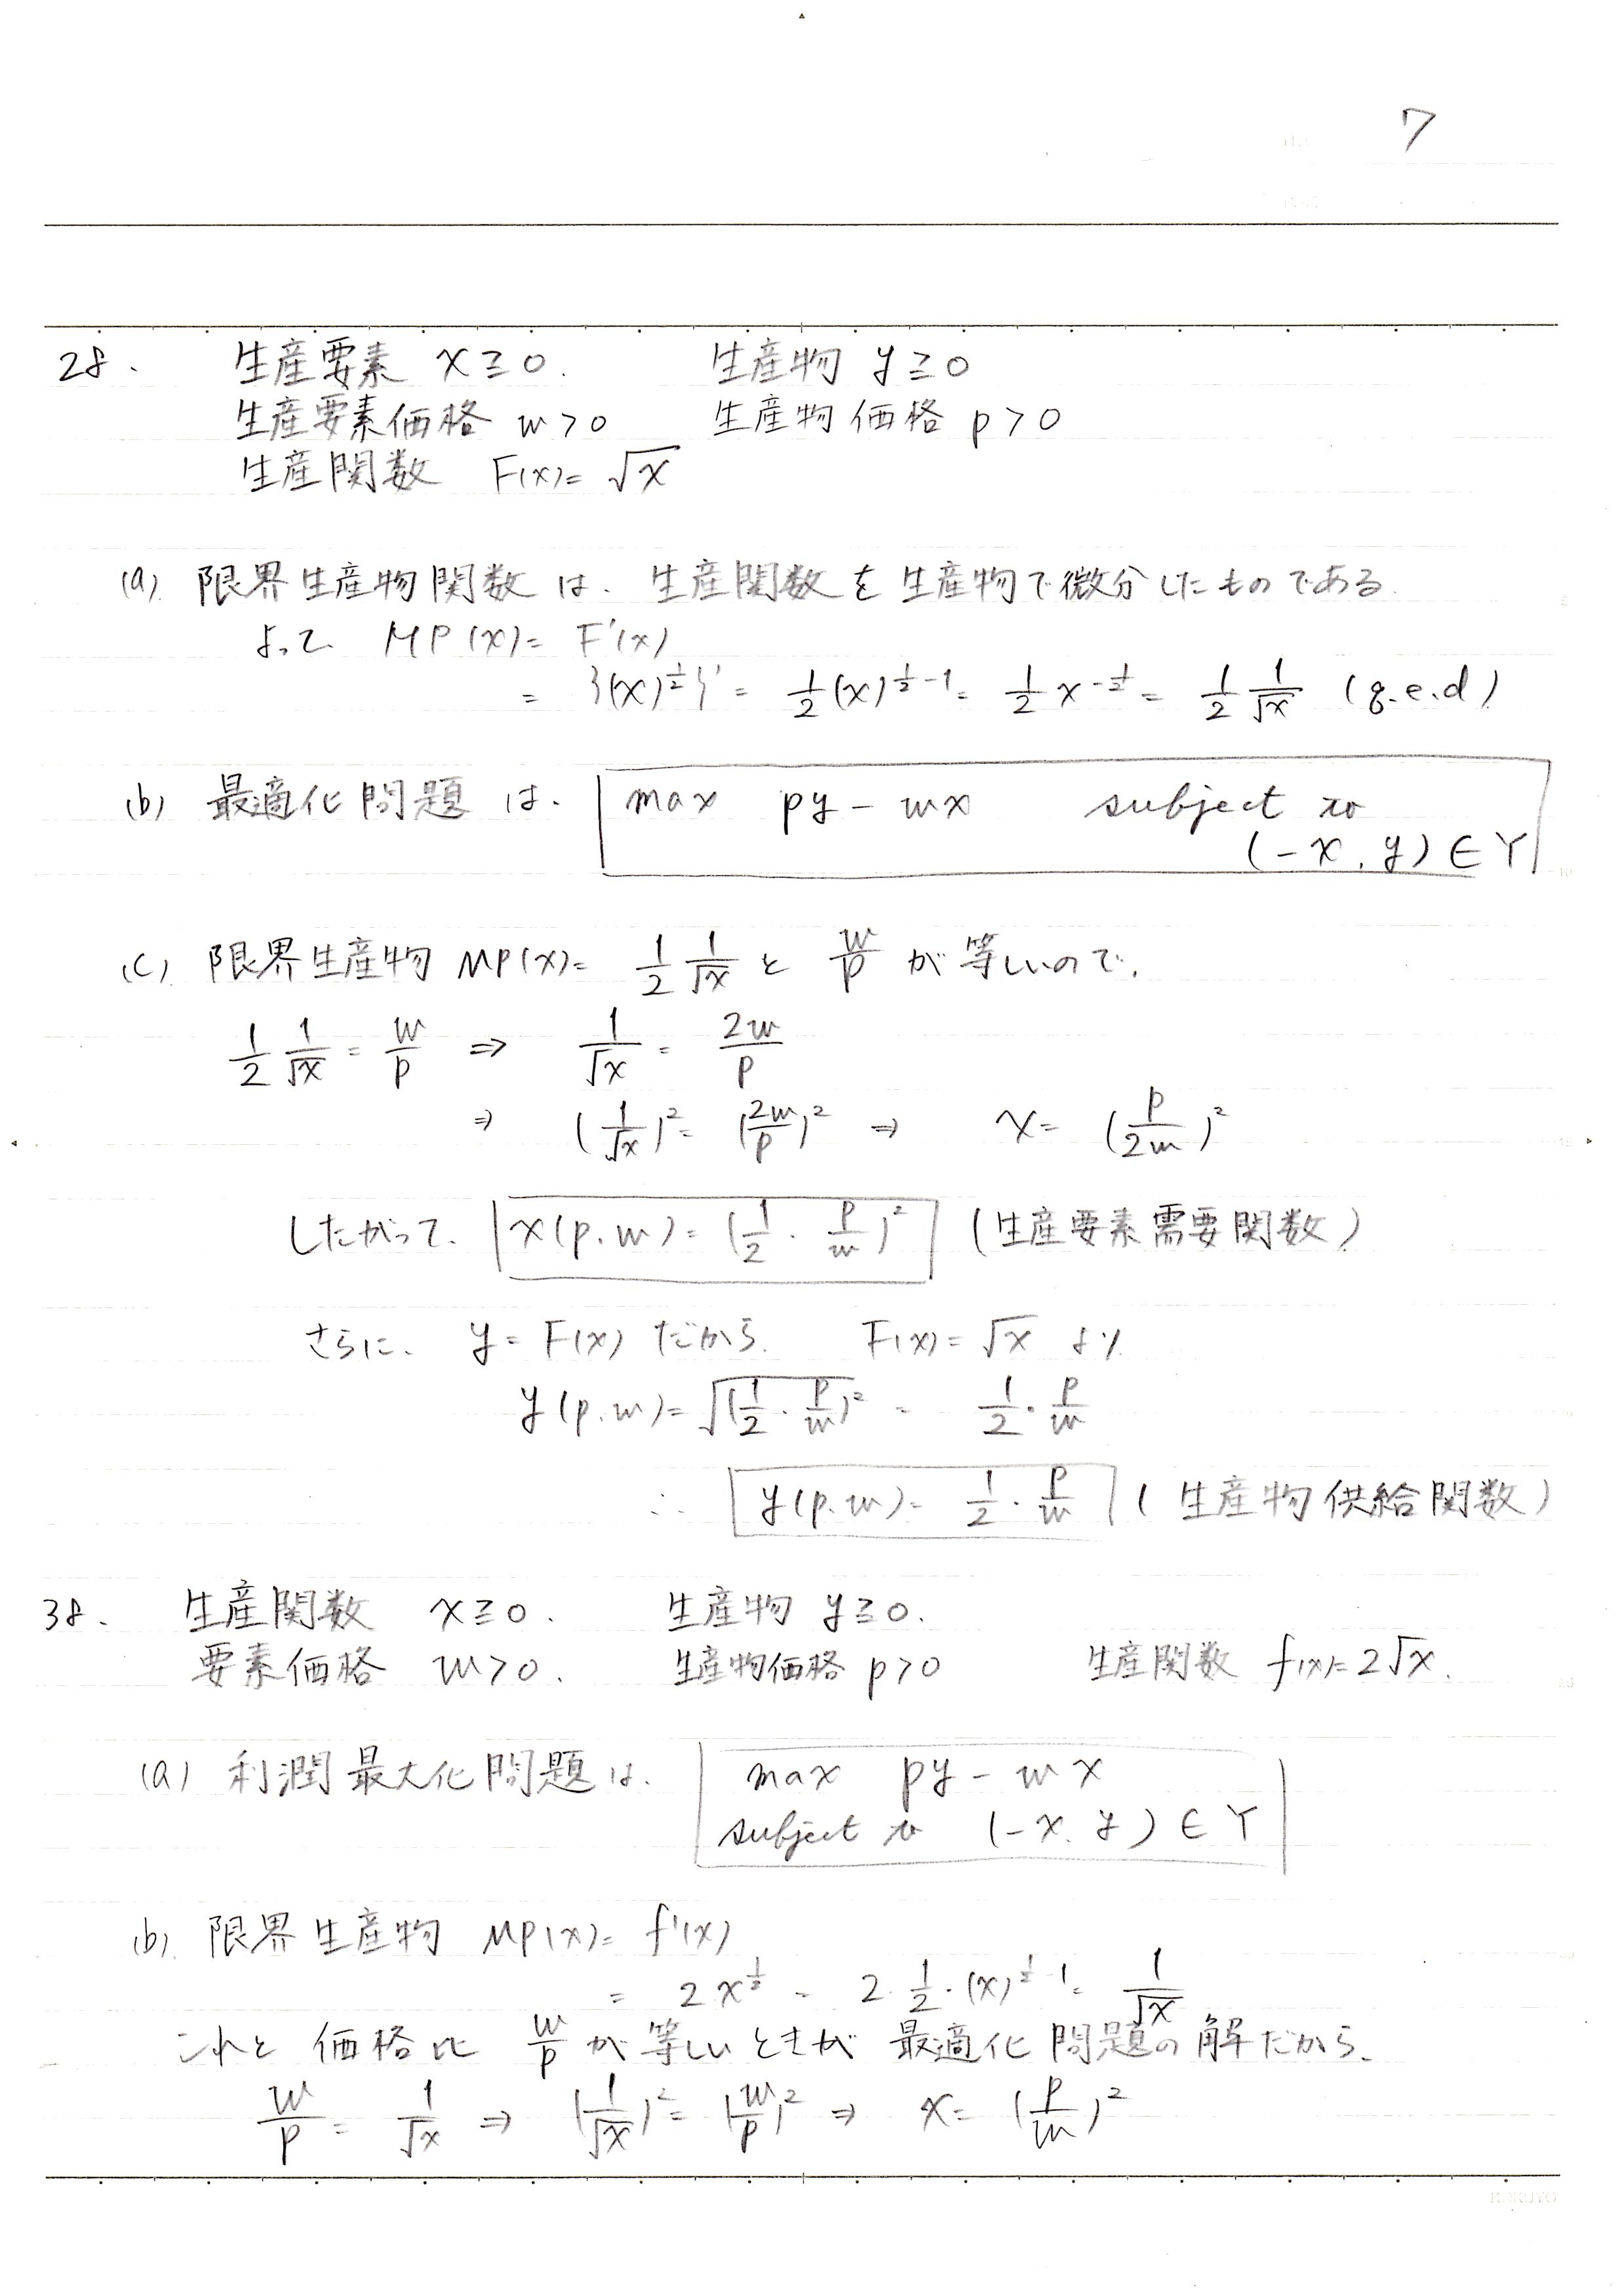 7
28. 生産要素 x≧0. 生産物 y≧0
生産要素価格 w>0 生産物価格 p>0
生産関数 F(x)= √x
(a). 限界生産物関数は、生産関数を生産物で微分したものである.
よって MP(x)= F'(x)
= {(x)^{1/2}}' = 1/2 (x)^{1/2 -1} = 1/2 x^{-1/2} = 1/2 1/√x (q.e.d)
(b) 最適化問題は、 max py-wx subject to
(-x, y) ∈ Y
(c). 限界生産物 MP(x)= 1/2 1/√x と w/p が等しいので、
1/2 1/√x = w/p ⇒ 1/√x = 2w/p
⇒ (1/√x)² = (2w/p)² ⇒ x= (p/2w)²
したがって、 x(p.w)= (1/2 · p/w)² (生産要素需要関数)
さらに、 y= F(x) だから. F(x)= √x より
y(p.w)= √(1/2 · p/w)² = 1/2 · p/w
∴ y(p.w)= 1/2 · p/w (生産物供給関数)
38. 生産関数 x≧0. 生産物 y≧0.
要素価格 w>0. 生産物価格 p>0 生産関数 f(x)= 2√x.
(a) 利潤最大化問題は、 max py-wx
subject to (-x. y) ∈ Y
(b). 限界生産物 MP(x)= f'(x)
= 2x^{1/2} = 2·1/2·(x)^{1/2 -1} = 1/√x
これと価格比 w/p が等しいときが最適化問題の解だから、
w/p = 1/√x ⇒ (1/√x)² = (w/p)² ⇒ x= (p/w)²
KOKUYO